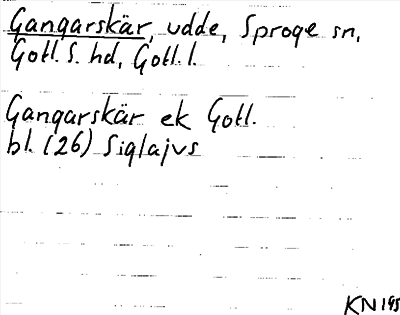 Gangarskär, udde, Sproge sn,
Gotl. S. hd, Gotl. l.
Gangarskär ek Gotl.
bl. (26) Siglajvs
KN 195